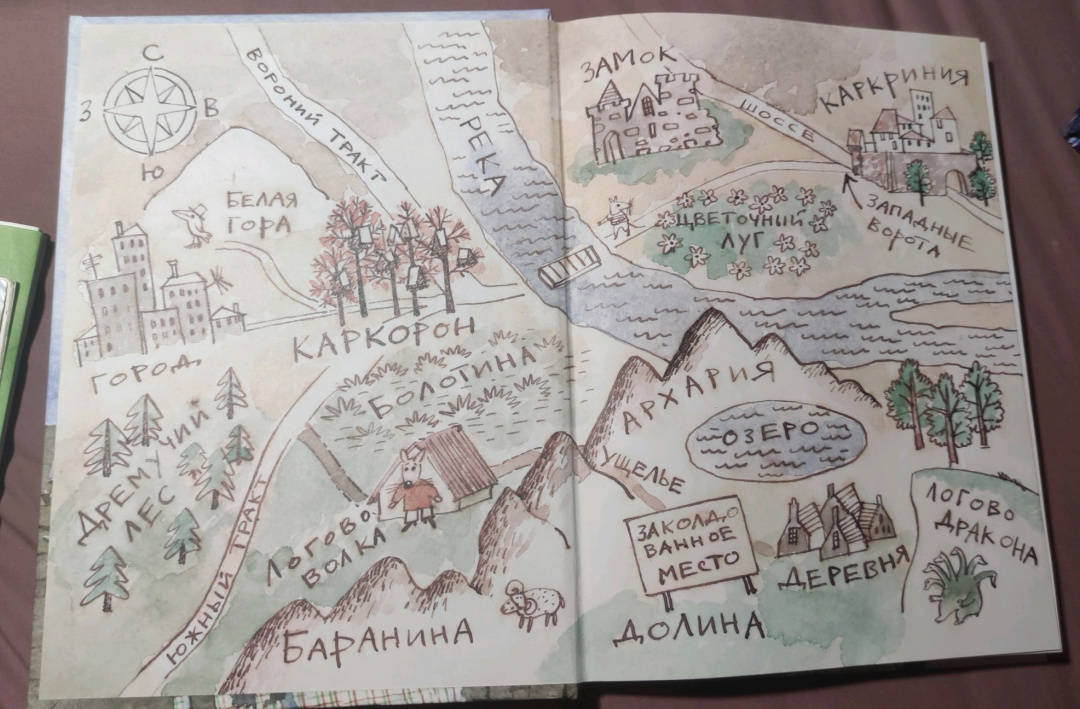 С
З
В
Ю
ВОРОНИЙ ТРАКТ
РЕКА
БЕЛАЯ
ГОРА
ГОРОД
КАРКОРОН
БОЛОТИНА
ДРЕМУЧИЙ
ЛЕС
ЮЖНЫЙ ТРАКТ
ЛОГОВО
ВОЛКА
БАРАНИНА
ЗАМОК
ШОССЕ
КАРКРИНИЯ
ЦВЕТОЧНЫЙ
ЛУГ
ЗАПАДНЫЕ
ВОРОТА
АРХАРИЯ
ОЗЕРО
УЩЕЛЬЕ
ЗАКОЛДО
ВАННОЕ
МЕСТО
ДОЛИНА
ДЕРЕВНЯ
ЛОГОВО
ДРАКОНА